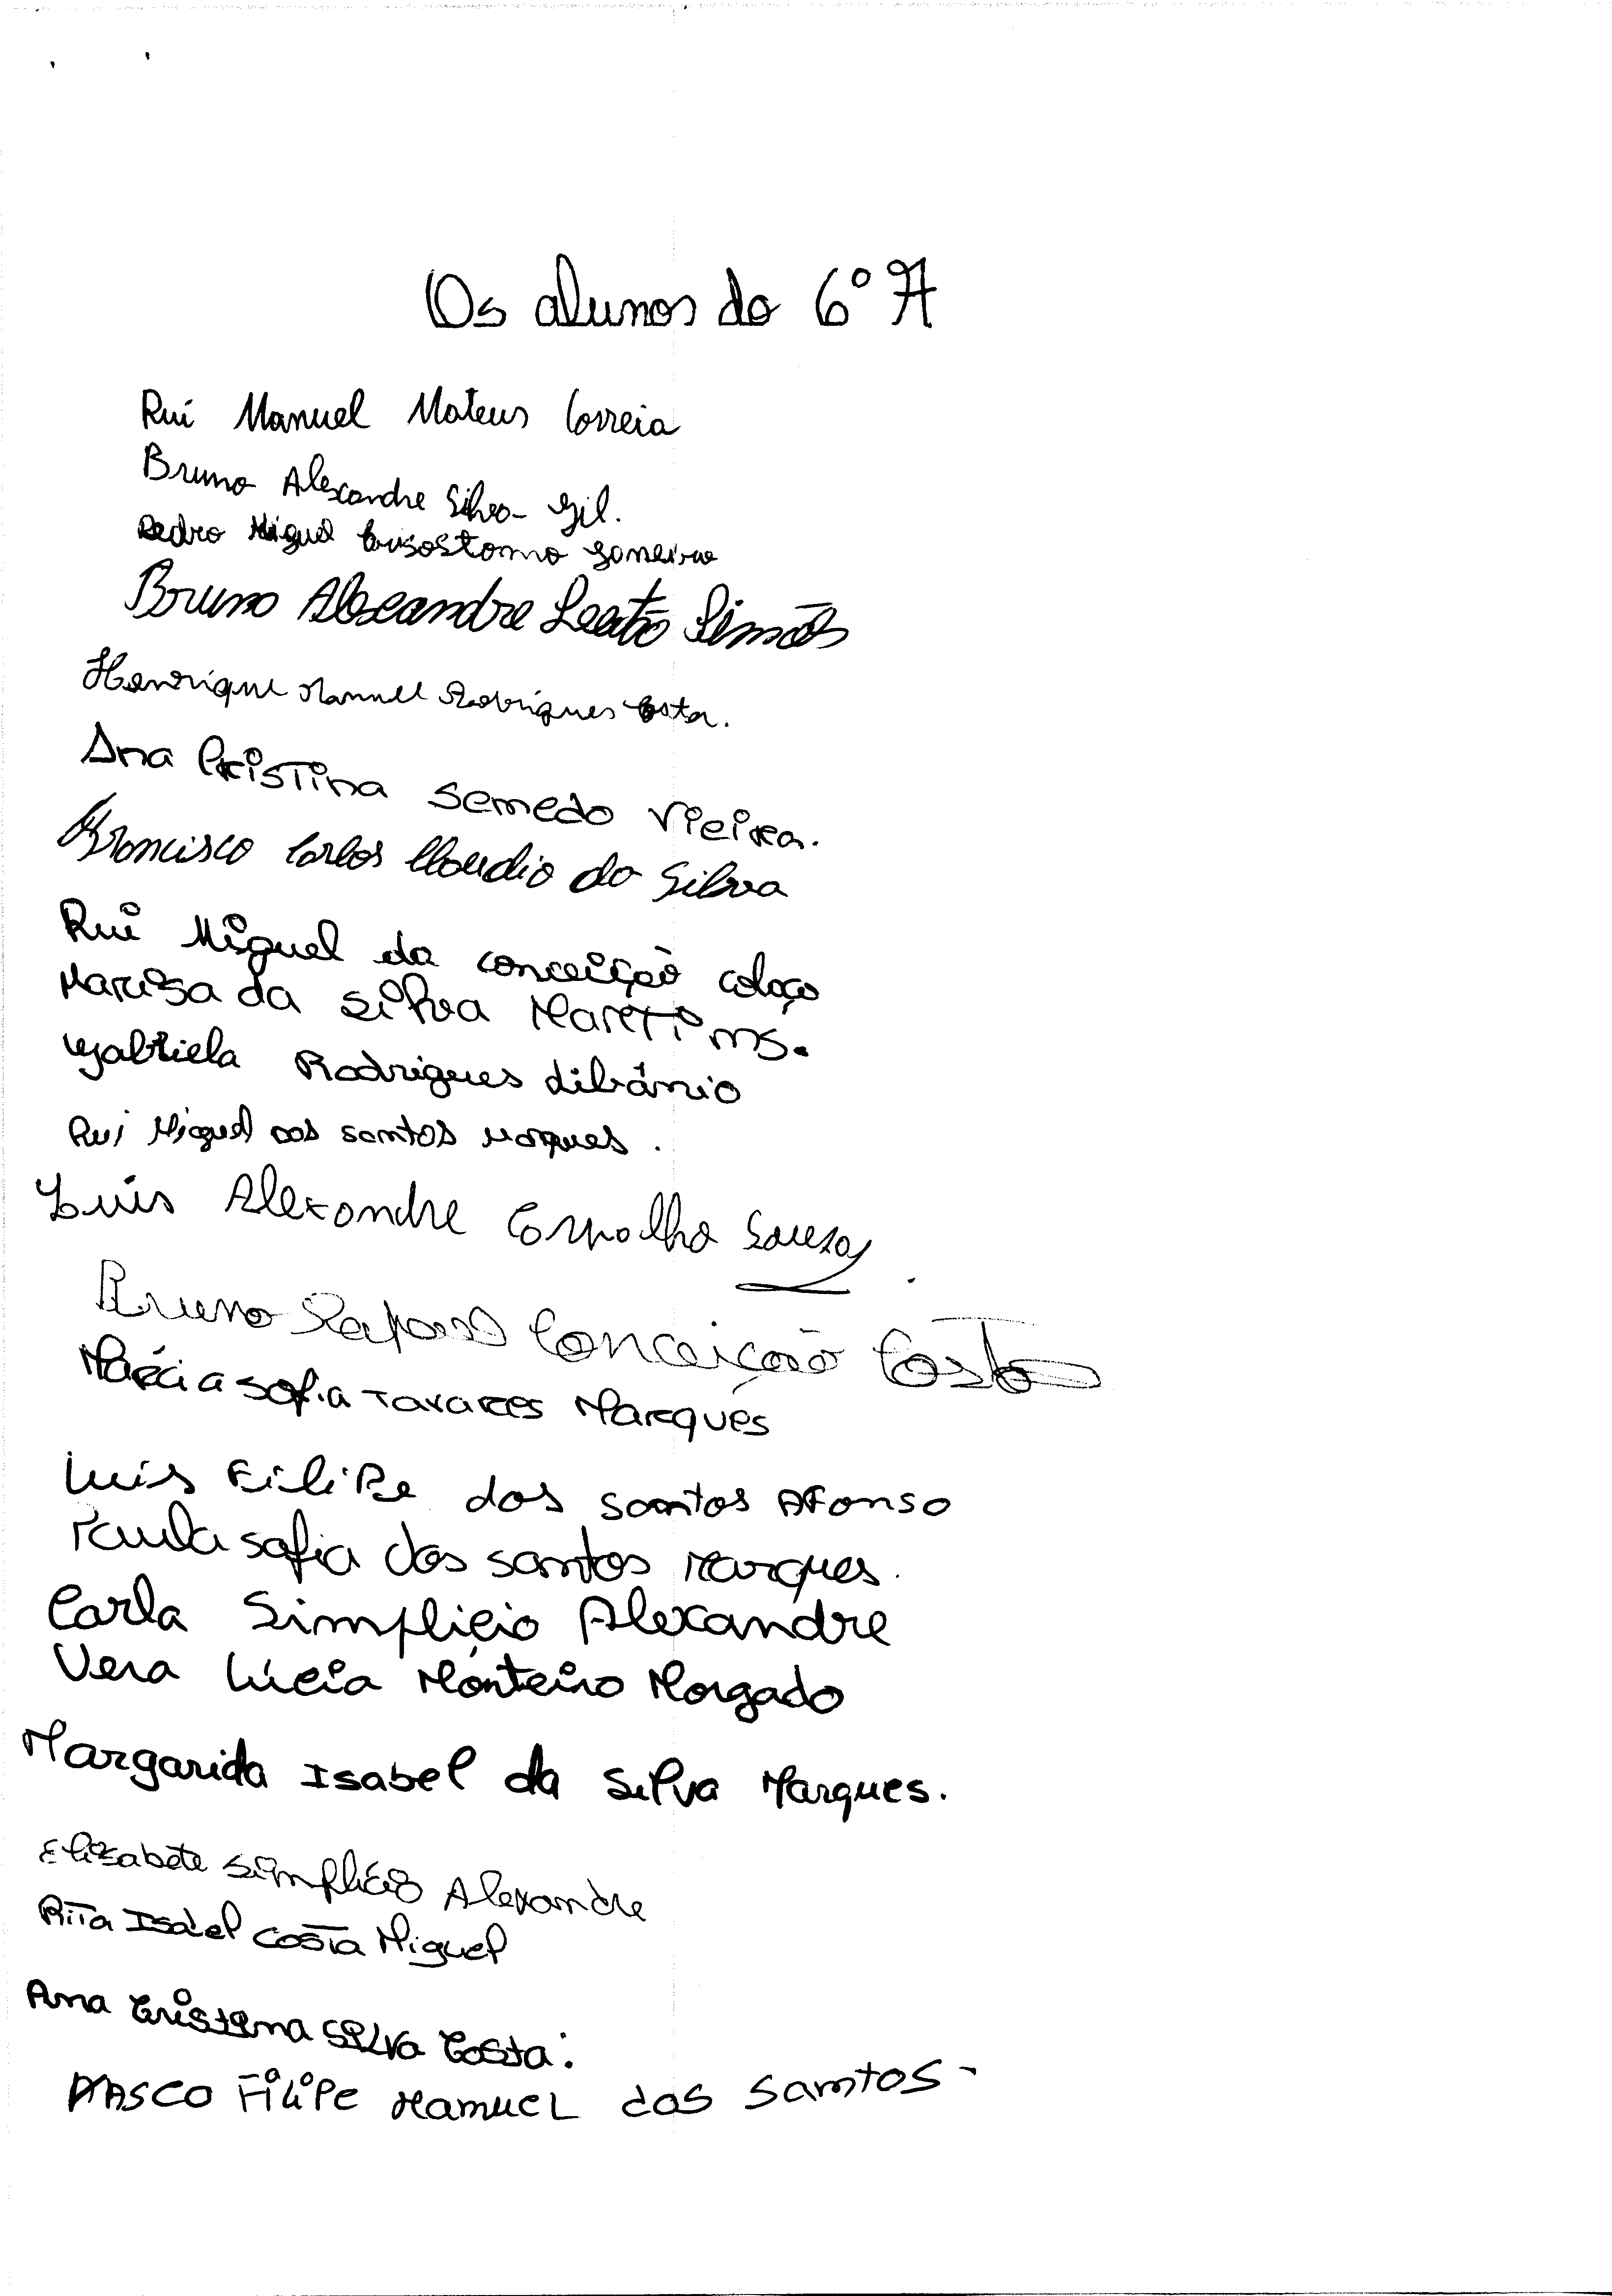 Os alunos do 6º A
Rui Manuel Mateus Correia
Bruno Alexandre Silva Gil.
Pedro Miguel Crisostomo
Bruno Alexandre Leitão Simões
Henrique Manuel Rodrigues Costa.
Ana Cristina Semedo Vieira.
Francisco Carlos Claudio da Silva
Rui Miguel da conceição colaço
Marisa da Silva Martins.
Gabriela Rodrigues Libânio
Rui Miguel dos santos Marques.
Luis Alexandre Carvalho Sousa.
Bruno Rafael Conceição Costa
Márcia Sofia Tavares Marques
Luis Filipe dos santos Afonso
Paula sofia dos santos Marques.
Carla Simplicio Alexandre
Vera Lúcia Monteiro Morgado
Margarida Isabel da Silva Marques.
Elisabete Simplício Alexandre
Rita Isabel Costa Miguel
Ana Cristina Silva Costa.
Vasco Filipe Manuel dos Santos